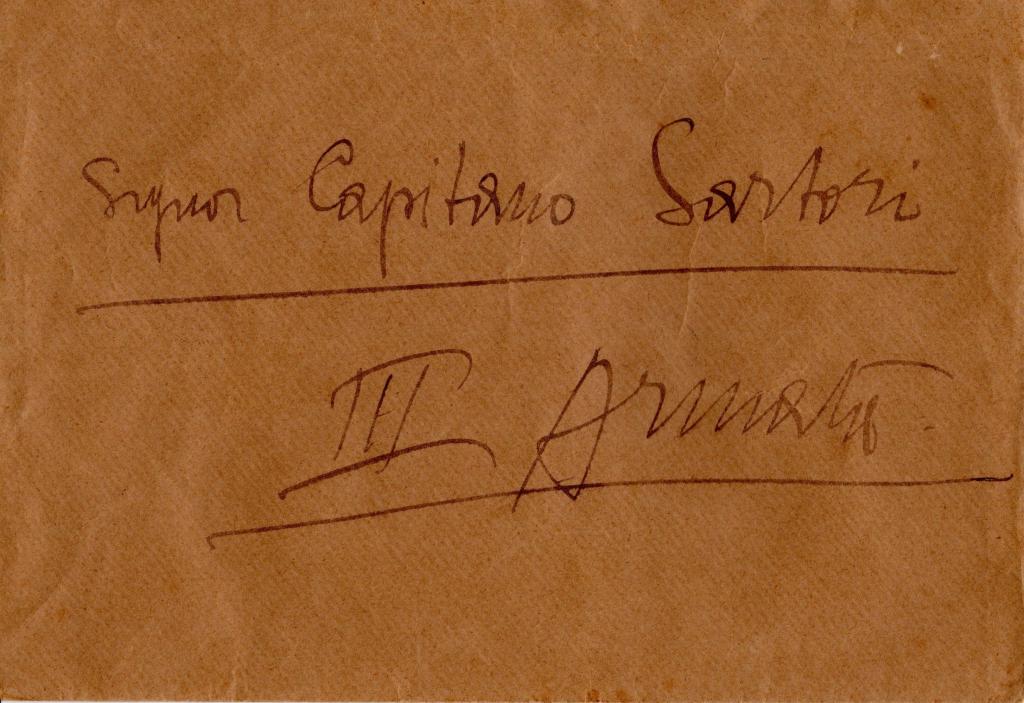 Signor Capitano Sartori
III Armata.